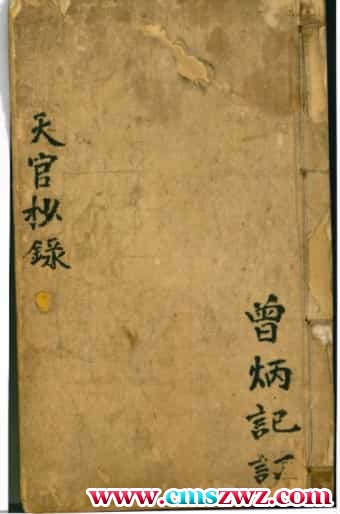 天官抄錄
曾炳記訂
www.cmszwz.com